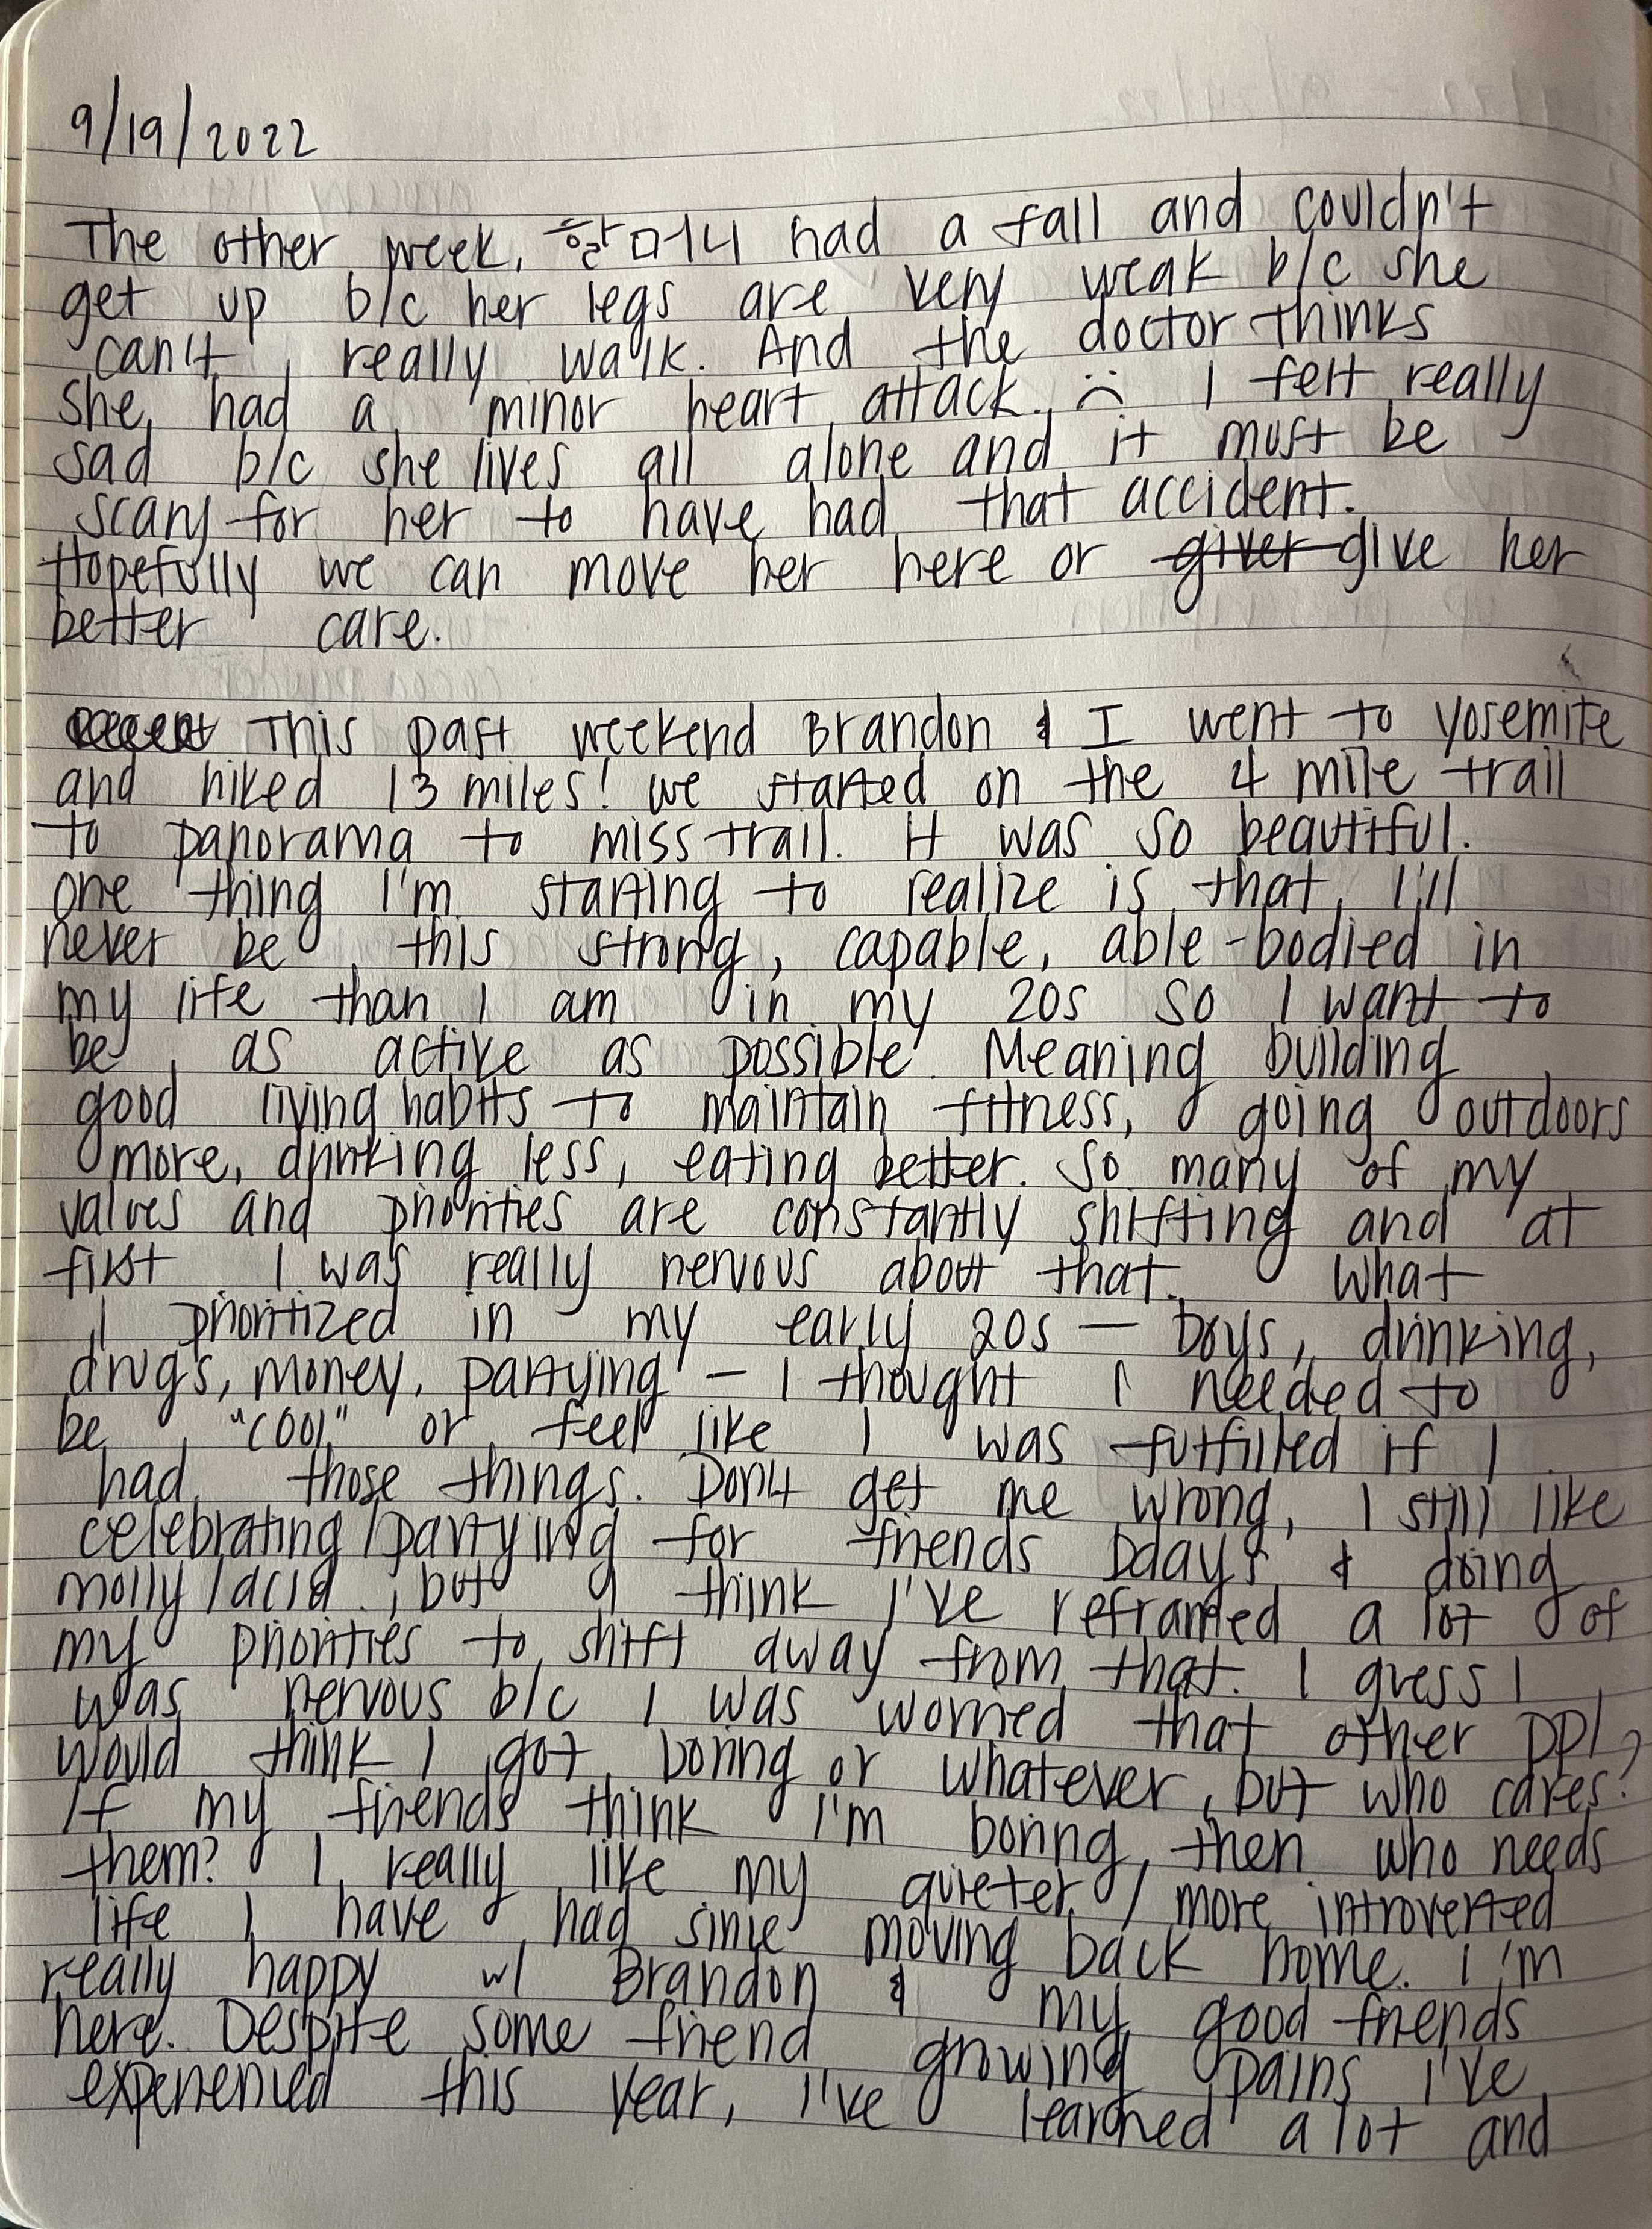 9/19/2022
The other week, 할머니 had a fall and couldn't
get up b/c her legs are very weak b/c she
can't really walk. And the doctor thinks
she had a minor heart attack. :( I felt really
sad b/c she lives all alone and it must be
scary for her to have had that accident.
Hopefully we can move her here or giver give her
better care.
This past weekend Brandon & I went to Yosemite
and hiked 13 miles! we started on the 4 mile trail
to panorama to miss trail. It was so beautiful.
one thing I'm starting to realize is that I'll
never be this strong, capable, able-bodied in
my life than I am in my 20s so I want to
be as active as possible. Meaning building
good living habits to maintain fitness, going outdoors
more, drinking less, eating better. So many of my
values and priorities are constantly shifting and at
first I was really nervous about that. What
I prioritized in my early 20s — boys, drinking,
drugs, money, partying — I thought I needed to
be "cool" or feel like I was fulfilled if I
had those things. Don't get me wrong, I still like
celebrating/partying for friends bdays & doing
molly/acid, but I think I've reframed a lot of
my priorities to shift away from that. I guess I
was nervous b/c I was worried that other ppl
would think I got boring or whatever, but who cares?
If my friends think I'm boring, then who needs
them? I really like my quieter / more introverted
life I have had since moving back home. I'm
really happy w/ Brandon & my good friends
here. Despite some friend growing pains I've
experienced this year, I've learned a lot and